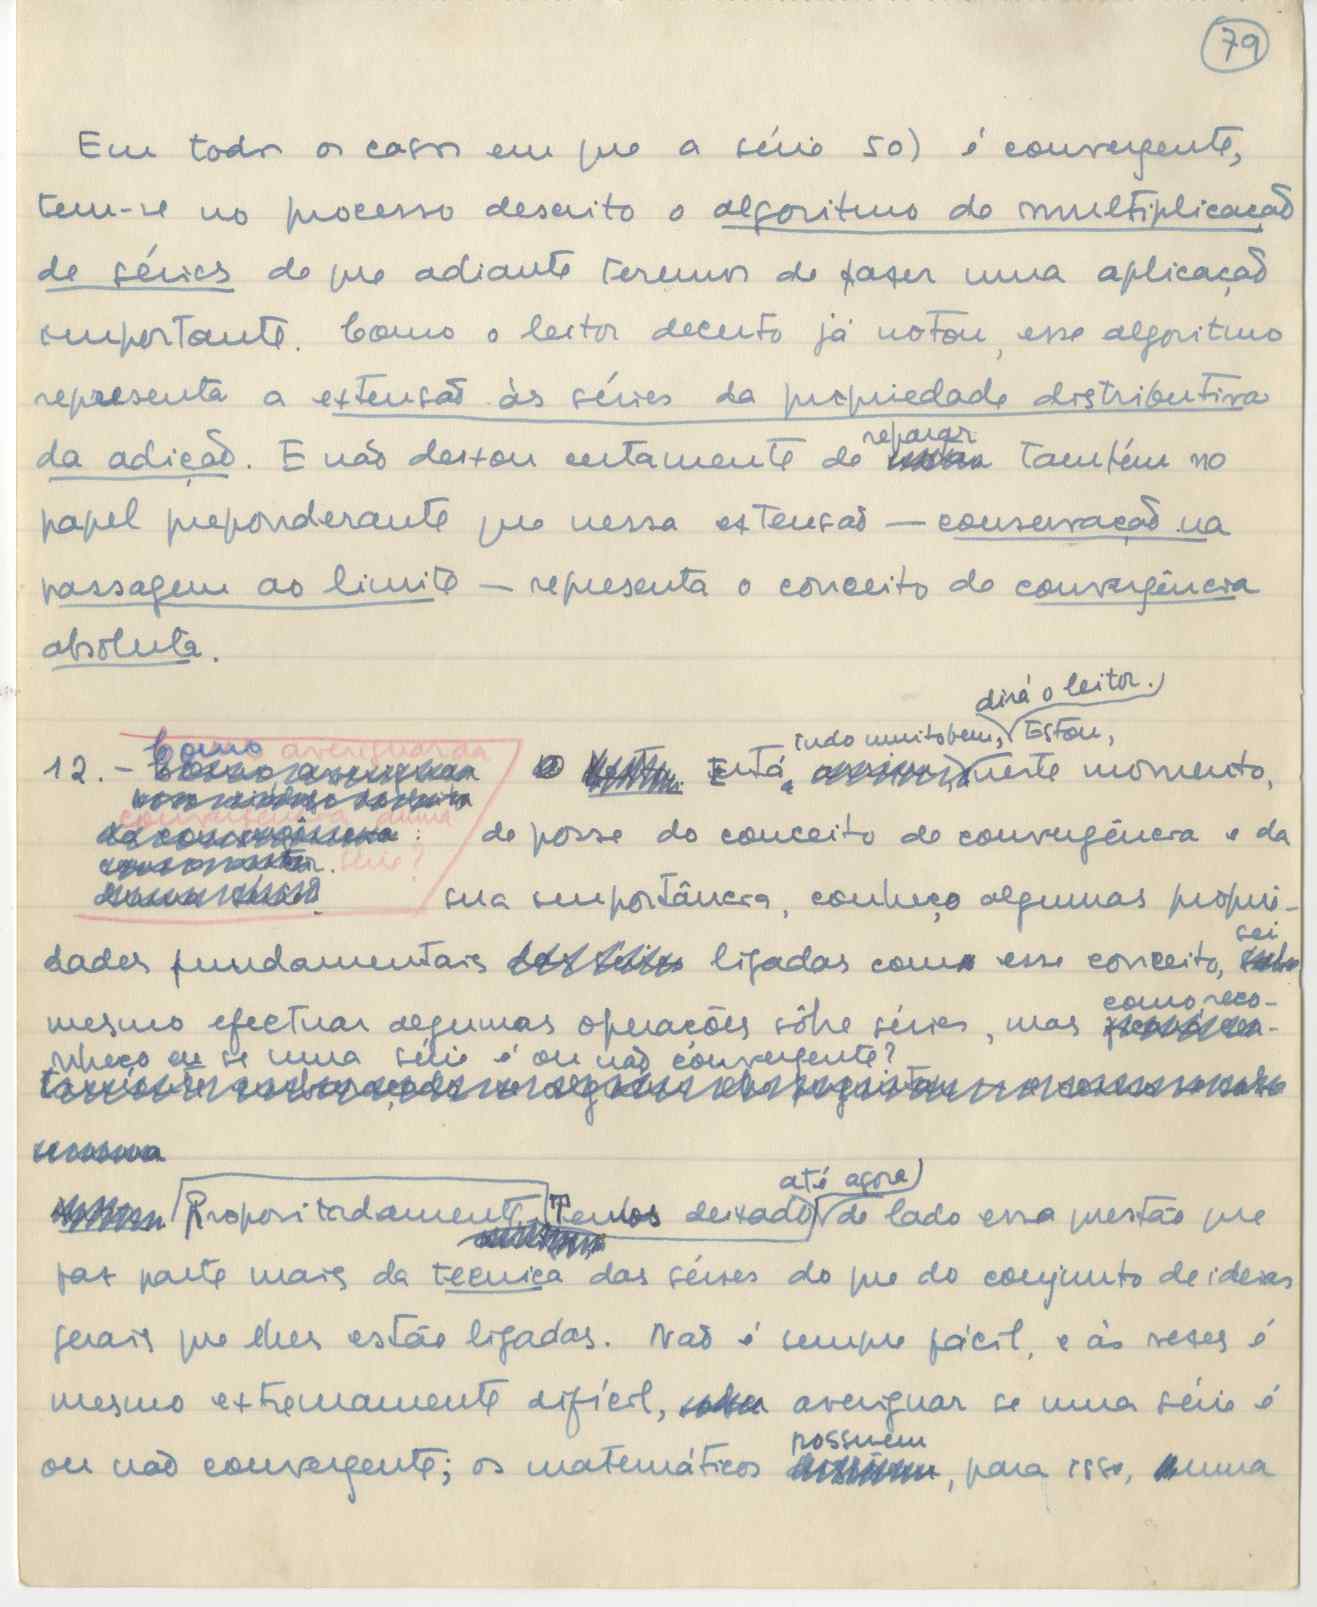 79
Em todos os casos em que a série 50) é convergente,
tem-se no processo descrito o algoritmo de multiplicação
de séries de que adiante teremos de fazer uma aplicação
importante. Como o leitor decerto já notou, esse algoritmo
representa a extensão às séries da propriedade distributiva
da adição. E não deixou certamente de reparar também no
papel preponderante que nessa extensão — conservação na
passagem ao limite — representa o conceito de convergência
absoluta.
dirá o leitor.
tudo muito bem, Estou,
12. - Como averiguar da Está neste momento,
convergência duma
de posse do conceito de convergência e da
série?
sua importância, conheço algumas proprie-
dades fundamentais ligadas com esse conceito, sei
mesmo efectuar algumas operações sôbre séries, mas como reco-
nheço eu se uma série é ou não convergente?
até agora
Propositadamente Temos deixado de lado essa questão que
faz parte mais da técnica das séries do que do conjunto de ideias
gerais que lhes estão ligadas. Não é sempre fácil, e às vezes é
mesmo extremamente difícil, averiguar se uma série é
ou não convergente; os matemáticos possuem, para isso, numa